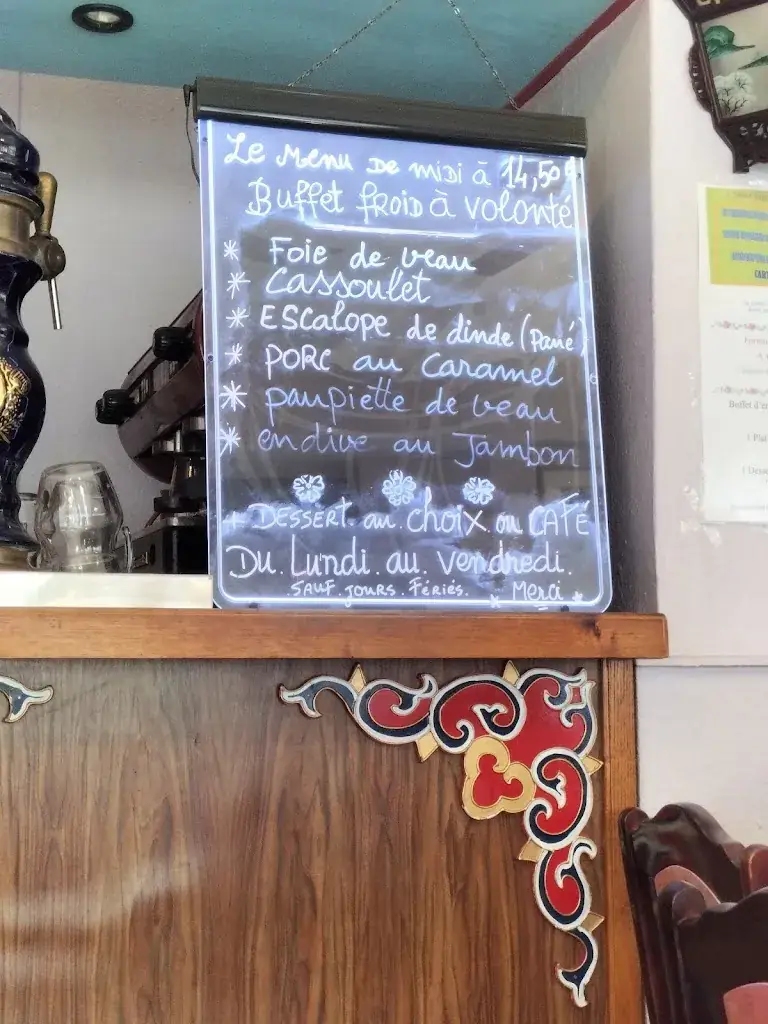 Le Menu De midi à 14,50€
Buffet froid à volonté
* Foie de veau
* Cassoulet
* Escalope de dinde (Pané)
* Porc au Caramel
* paupiette de veau
* endive au Jambon
+ Dessert au choix ou CAFÉ
Du. Lundi. au. vendredi.
.SAUF. JOURS. Fériés. Merci
CART
1 Plat